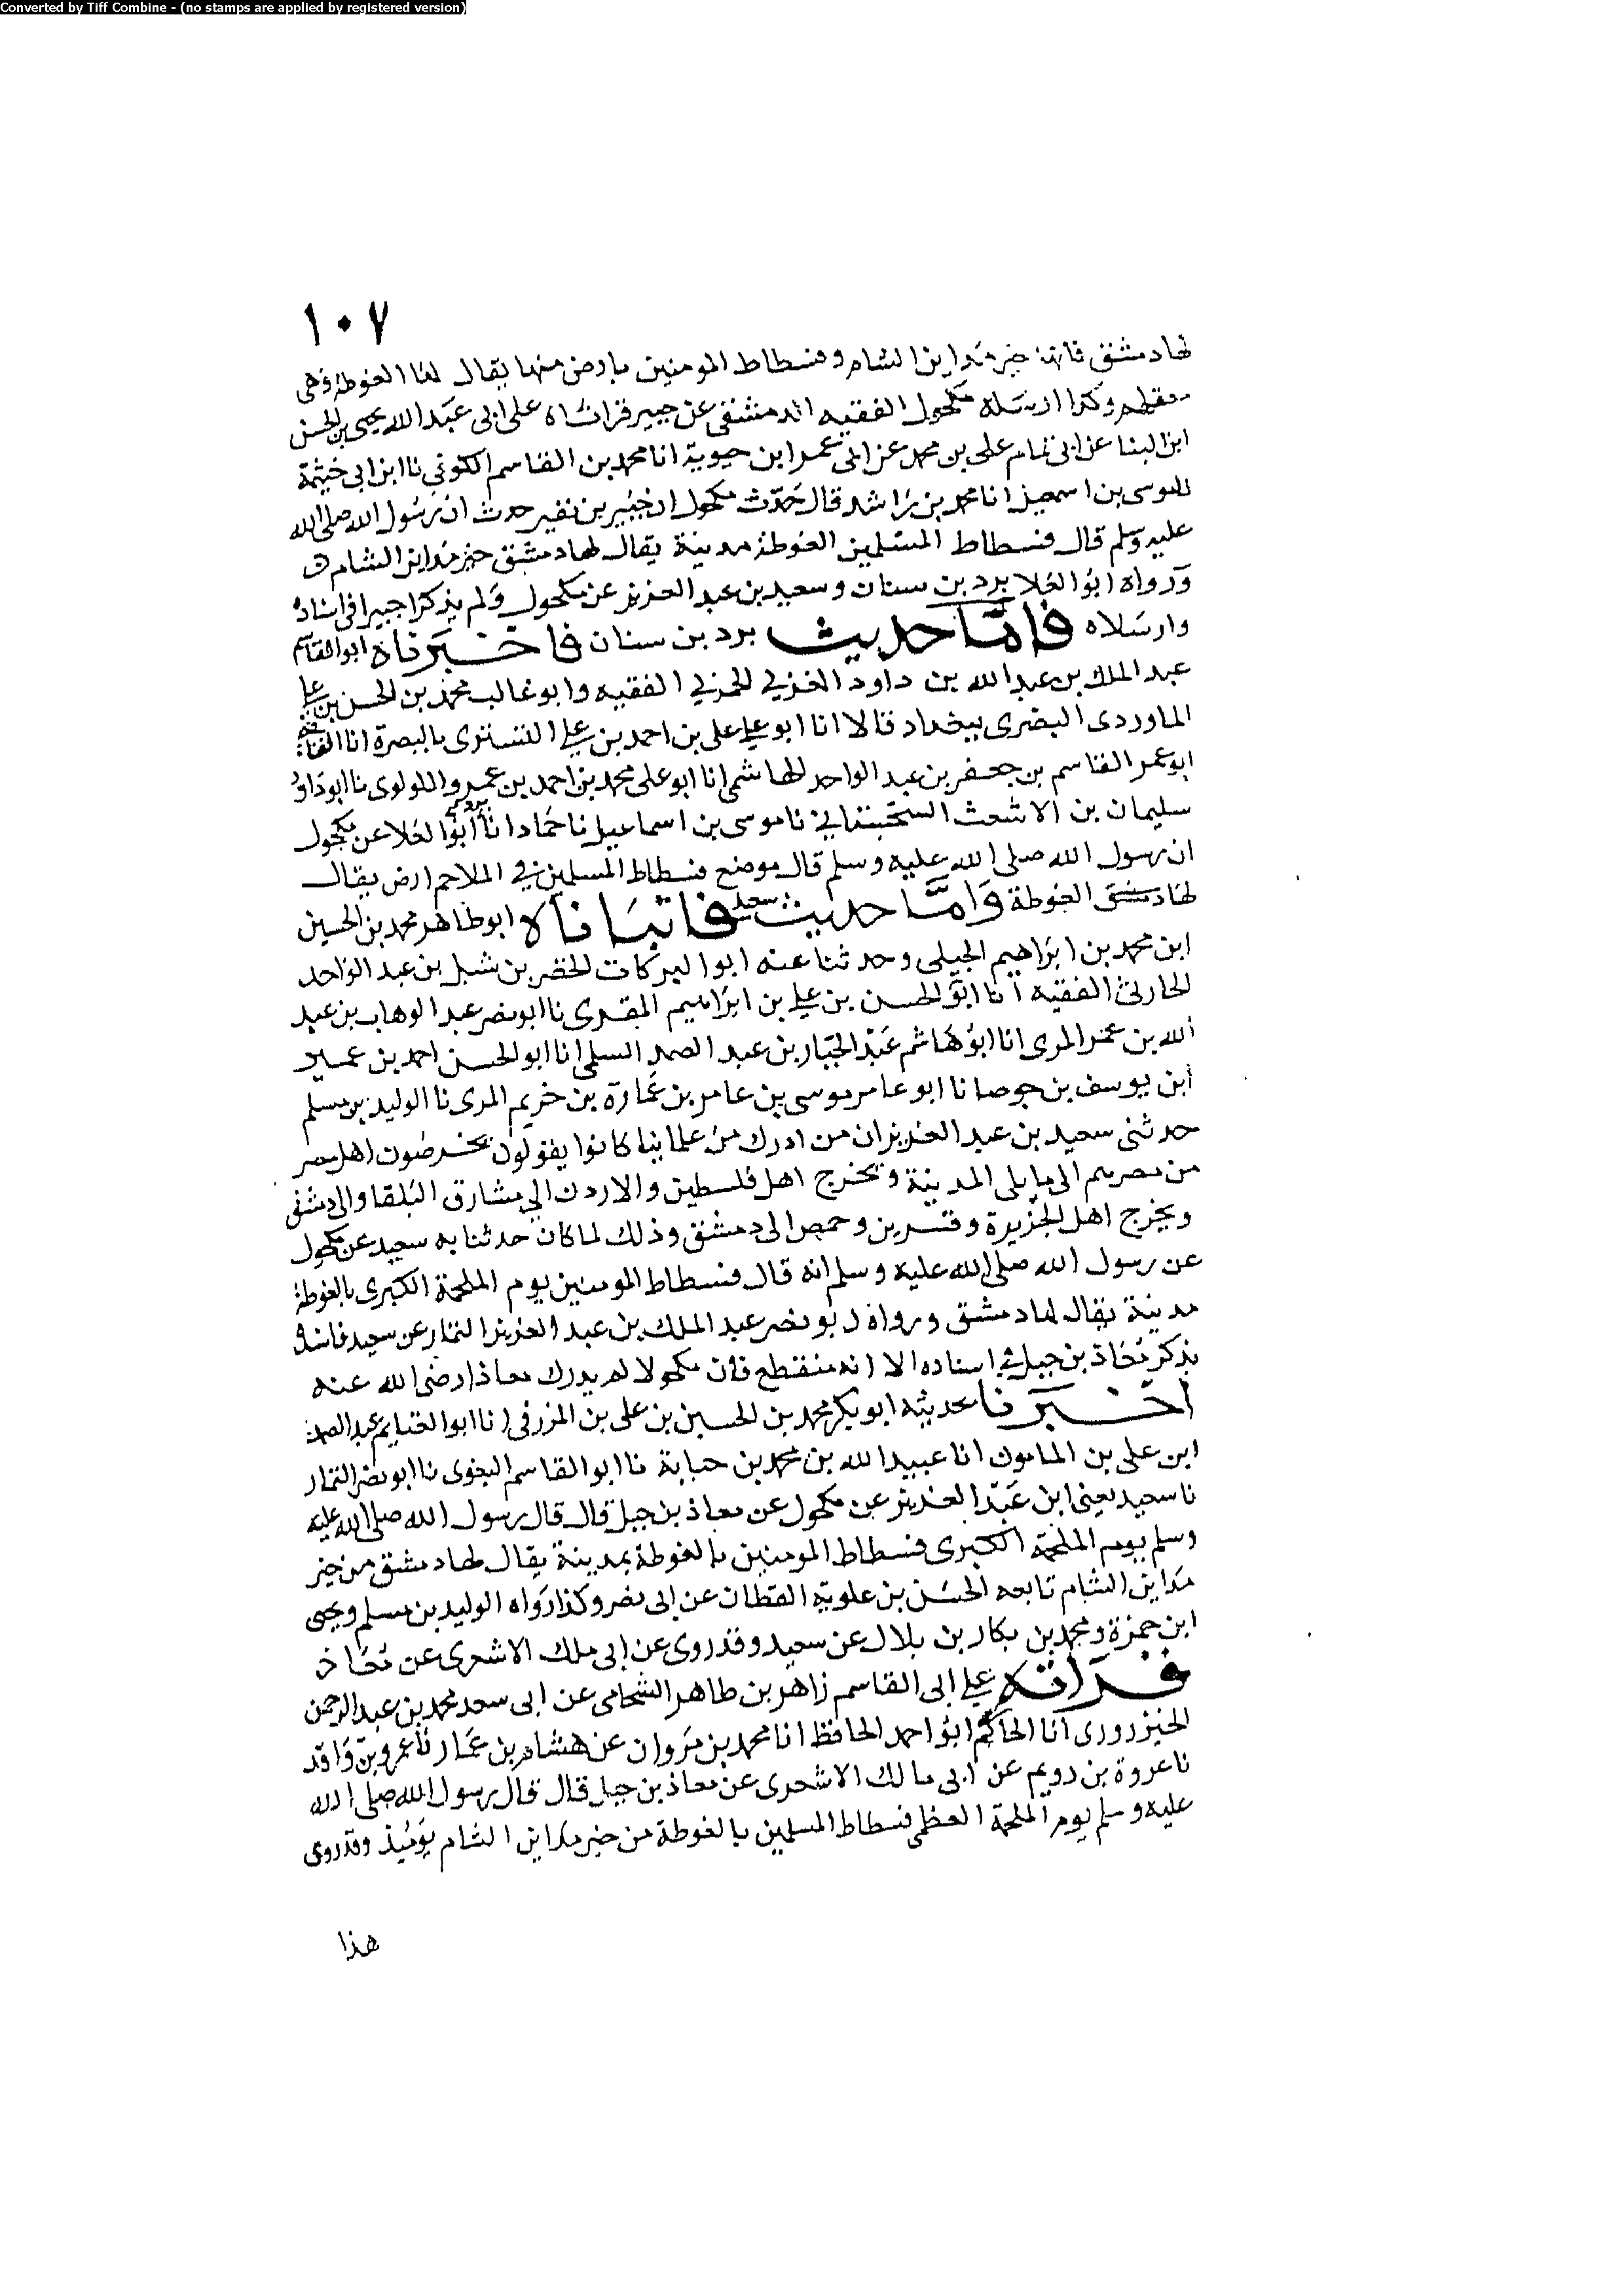 Converted by Tiff Combine - (no stamps are applied by registered version)
١٠٧
لها دمشق فانها خير مداين الشام وفسطاط المومنين بارض منها يقال لها الغوطة وهي
معقلهم وكذا ارسله مكحول الفقيه الدمشقي عن جبير قراناه على ابي عبد الله يحيى بن الحسن
ابن البنا عن ابي تمام علي بن محمد عن ابي عمر ابن حيوية انا محمد بن القاسم الكوفي نا ابن ابي خيثمة
موسى بن اسمعيل انا محمد بن راشد قال حدث مكحول ان جبير بن نفير حدث ان رسول الله صلى الله
عليه وسلم قال فسطاط المسلمين الغوطة مدينة يقال لها دمشق خير مداين الشام
ورواه ابو العلا برد بن سنان وسعيد بن عبد العزيز عن مكحول ولم يذكرا جبيرا في اسناده
وارسلاه فاما حديث برد بن سنان فاخبرناه ابو القاسم
عبد الملك بن عبد الله بن داود الغزي الحمزي الفقيه وابو غالب محمد بن الحسن بن علي
الماوردي البصري ببغداد قالا انا ابو علي علي بن احمد بن علي التستري بالبصرة انا القاضي
ابو عمر القاسم بن جعفر بن عبد الواحد الهاشمي انا ابو علي محمد بن احمد بن عمرو اللولوي نا ابو داود
سليمان بن الاشعث السجستاني نا موسى بن اسماعيل نا حماد انا برد ابو العلا عن مكحول
ان رسول الله صلى الله عليه وسلم قال موضع فسطاط المسلمين في الملاحم ارض يقال
لها دمشق الغوطة واما حديث سعيد فانبانا ه ابو طاهر محمد بن الحسين
ابن محمد بن ابراهيم الجيلي وحدثنا عنه ابو البركات الخضر بن شبل بن عبد الواحد
الحارثي الفقيه انا ابو الحسن بن علي بن ابراهيم المقري نا ابو نصر عبد الوهاب بن عبد
الله بن عمر المري انا ابو هاشم عبد الجبار بن عبد الصمد السلمي انا ابو الحسن احمد بن عمير
ابن يوسف بن جوصا نا ابو عامر موسى بن عامر بن عمارة بن خريم المري نا الوليد بن مسلم
حدثني سعيد بن عبد العزيز ان من ادرك من علماينا كانوا يقولون يخرجون اهل مصر
من مصرهم الى ما يلي المدينة ويخرج اهل فلسطين والاردن الى مشارق البلقا والى دمشق
ويخرج اهل الجزيرة وقنسرين وحمص الى دمشق وذلك لما كان حدثنا به سعيد عن مكحول
عن رسول الله صلى الله عليه وسلم انه قال فسطاط المومنين يوم الملحمة الكبرى بالغوطة
مدينة يقال لها دمشق ورواه ابو نصر عبد الملك بن عبد العزيز التمار عن سعيد فاسنده
بذكر معاذ بن جبل في اسناده الا انه منقطع فان مكحولا لم يدرك معاذا رضي الله عنه
اخبرنا بحديثه ابو بكر محمد بن الحسين بن علي بن المزرفي انا ابو الغنايم عبد الصمد
ابن علي بن المامون انا عبيد الله بن محمد بن حبابة نا ابو القاسم البغوي نا ابو نصر التمار
نا سعيد يعني ابن عبد العزيز عن مكحول عن معاذ بن جبل قال قال رسول الله صلى الله عليه
وسلم يوم الملحمة الكبرى فسطاط المومنين بالغوطة بمدينة يقال لها دمشق من خير
مداين الشام تابعه الحسن بن علوية القطان عن ابي نصر وكذا رواه الوليد بن مسلم ويحيى
ابن حمزة ومحمد بن بكار بن بلال عن سعيد وقد روي عن ابي ملك الاشعري عن معاذ
قراته علي ابي القاسم زاهر بن طاهر الشحامي عن ابي سعد محمد بن عبد الرحمن
الخبزرودي انا الحاكم ابو احمد الحافظ انا محمد بن مروان عن هشام بن عمار نا عمرو بن واقد
نا عروة بن رويم عن ابي مالك الاشعري عن معاذ بن جبل قال قال رسول الله صلى الله
عليه وسلم يوم الملحمة العظمى فسطاط المسلمين بالغوطة من خير مداين الشام يومئذ وقد روى
هذا